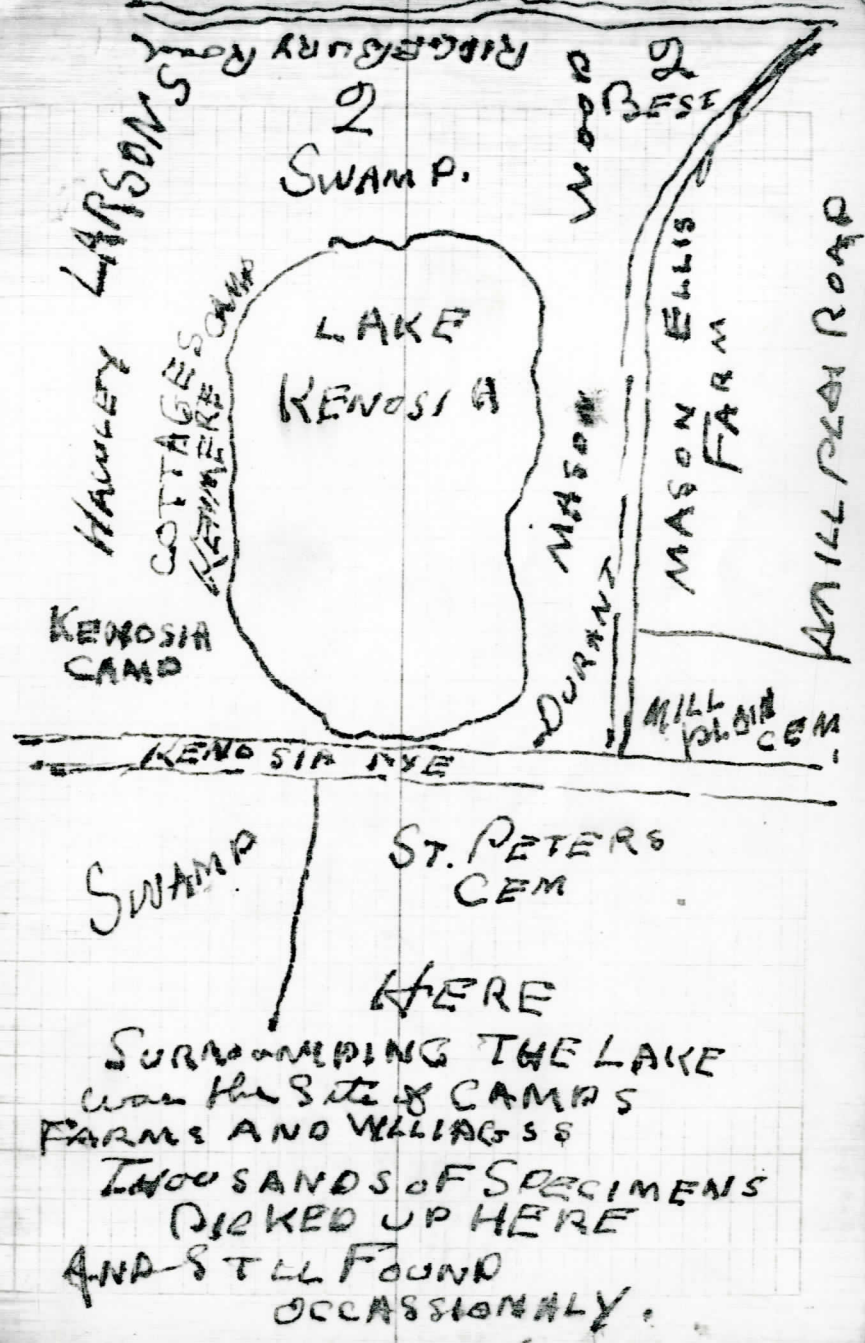 RIDGEBURY Road
2
SWAMP.
WOOD
2
BEST
LARSONS
HAWLEY
COTTAGES
CAMP
KENMERE
KENOSIA
CAMP
LAKE
KENOSIA
MASON
DURANT
MASON ELLIS
FARM
MILL PLAI ROAD
MILL
PLAIN
CEM
KENOSIA AVE
SWAMP
ST. PETERS
CEM
HERE
SURROUNDING THE LAKE
was the Site of CAMPS
FARMS AND VILLIAGSS
THOUSANDS OF SPECIMENS
PICKED UP HERE
AND STLL FOUND
OCCASSIONALY.